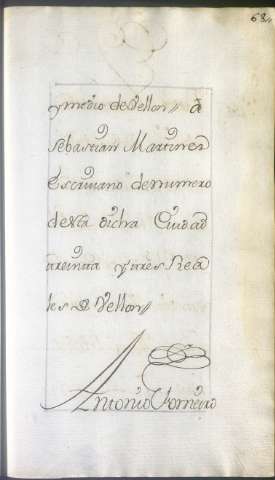 68
y medio de Vellon // â
Sebastian Martinez
Escrivano de numero
de Vta dicha Ciudad
treinta y tres Rea
les D Vellon //
Antonio